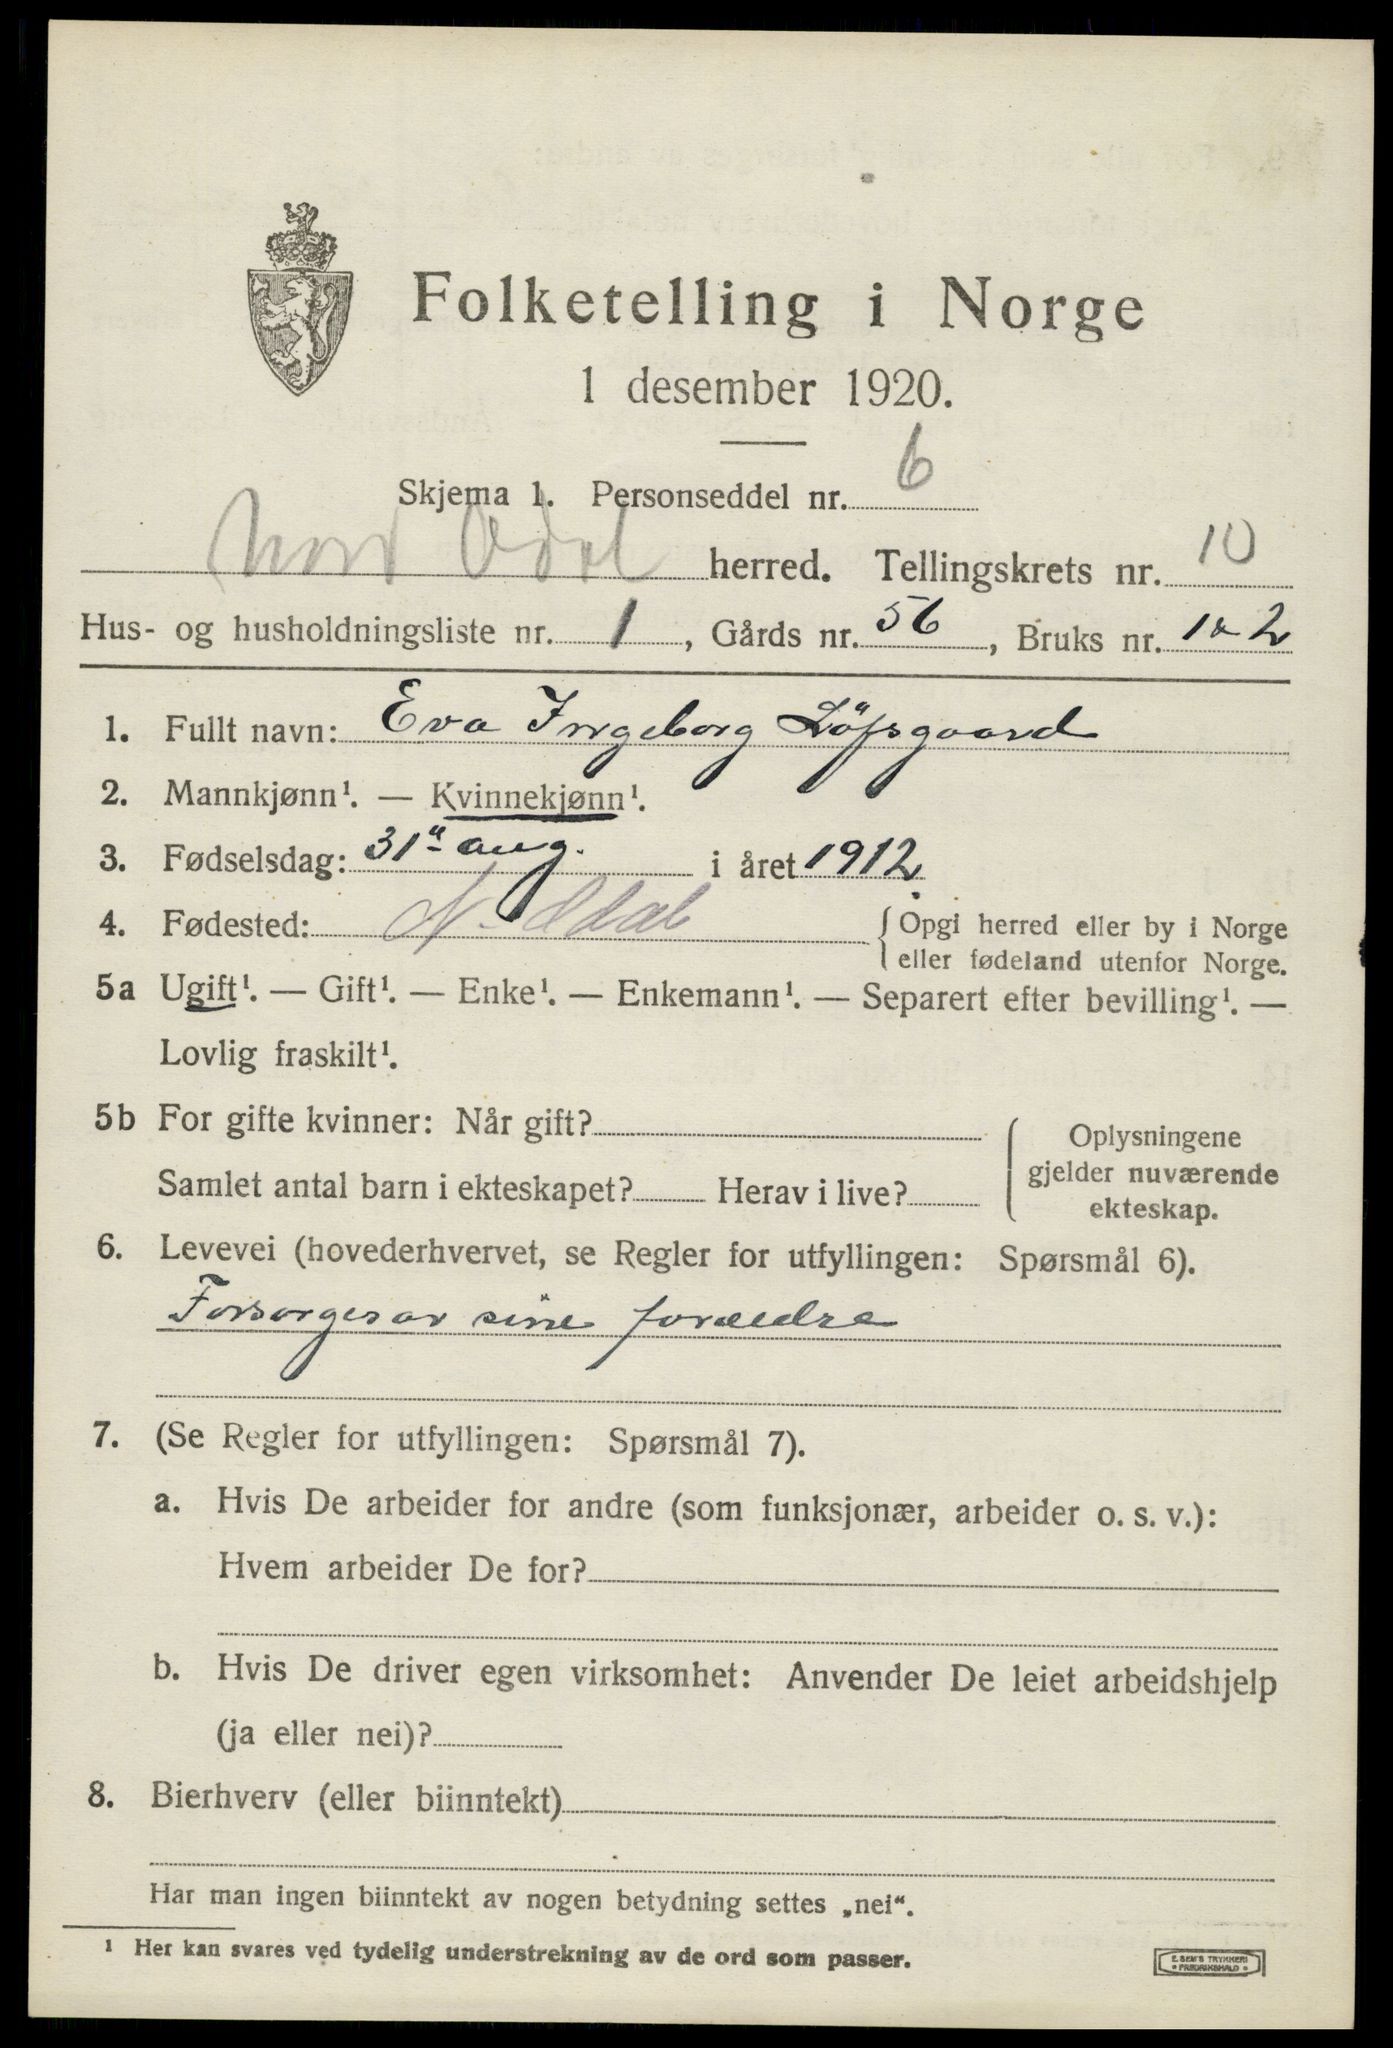 Folketelling i Norge
1 desember 1920.
Skjema 1. Personseddel nr. 6
Nord Odal herred. Tellingskrets nr. 10
Hus- og husholdningsliste nr. 1, Gårds nr. 56, Bruks nr. 1 & 2
1. Fullt navn: Eva Ingeborg Löfsgaard
2. Mannkjønn¹. — Kvinnekjønn¹.
3. Fødselsdag: 31" aug. i året 1912
4. Fødested: N. Odal {Opgi herred eller by i Norge
eller fødeland utenfor Norge.
5a Ugift¹. — Gift¹. — Enke¹. — Enkemann¹. — Separert efter bevilling¹. —
Lovlig fraskilt¹.
5b For gifte kvinner: Når gift?
Samlet antal barn i ekteskapet? Herav i live?
Oplysningene
gjelder nuværende
ekteskap.
6. Levevei (hovederhvervet, se Regler for utfyllingen: Spørsmål 6).
Forsørges av sine forældre
7. (Se Regler for utfyllingen: Spørsmål 7).
a. Hvis De arbeider for andre (som funksjonær, arbeider o. s. v.):
Hvem arbeider De for?
b. Hvis De driver egen virksomhet: Anvender De leiet arbeidshjelp
(ja eller nei)?
8. Bierhverv (eller biinntekt)
Har man ingen biinntekt av nogen betydning settes „nei“.
¹ Her kan svares ved tydelig understrekning av de ord som passer.
E. SEM'S TRYKKERI
FREDRIKSHALD